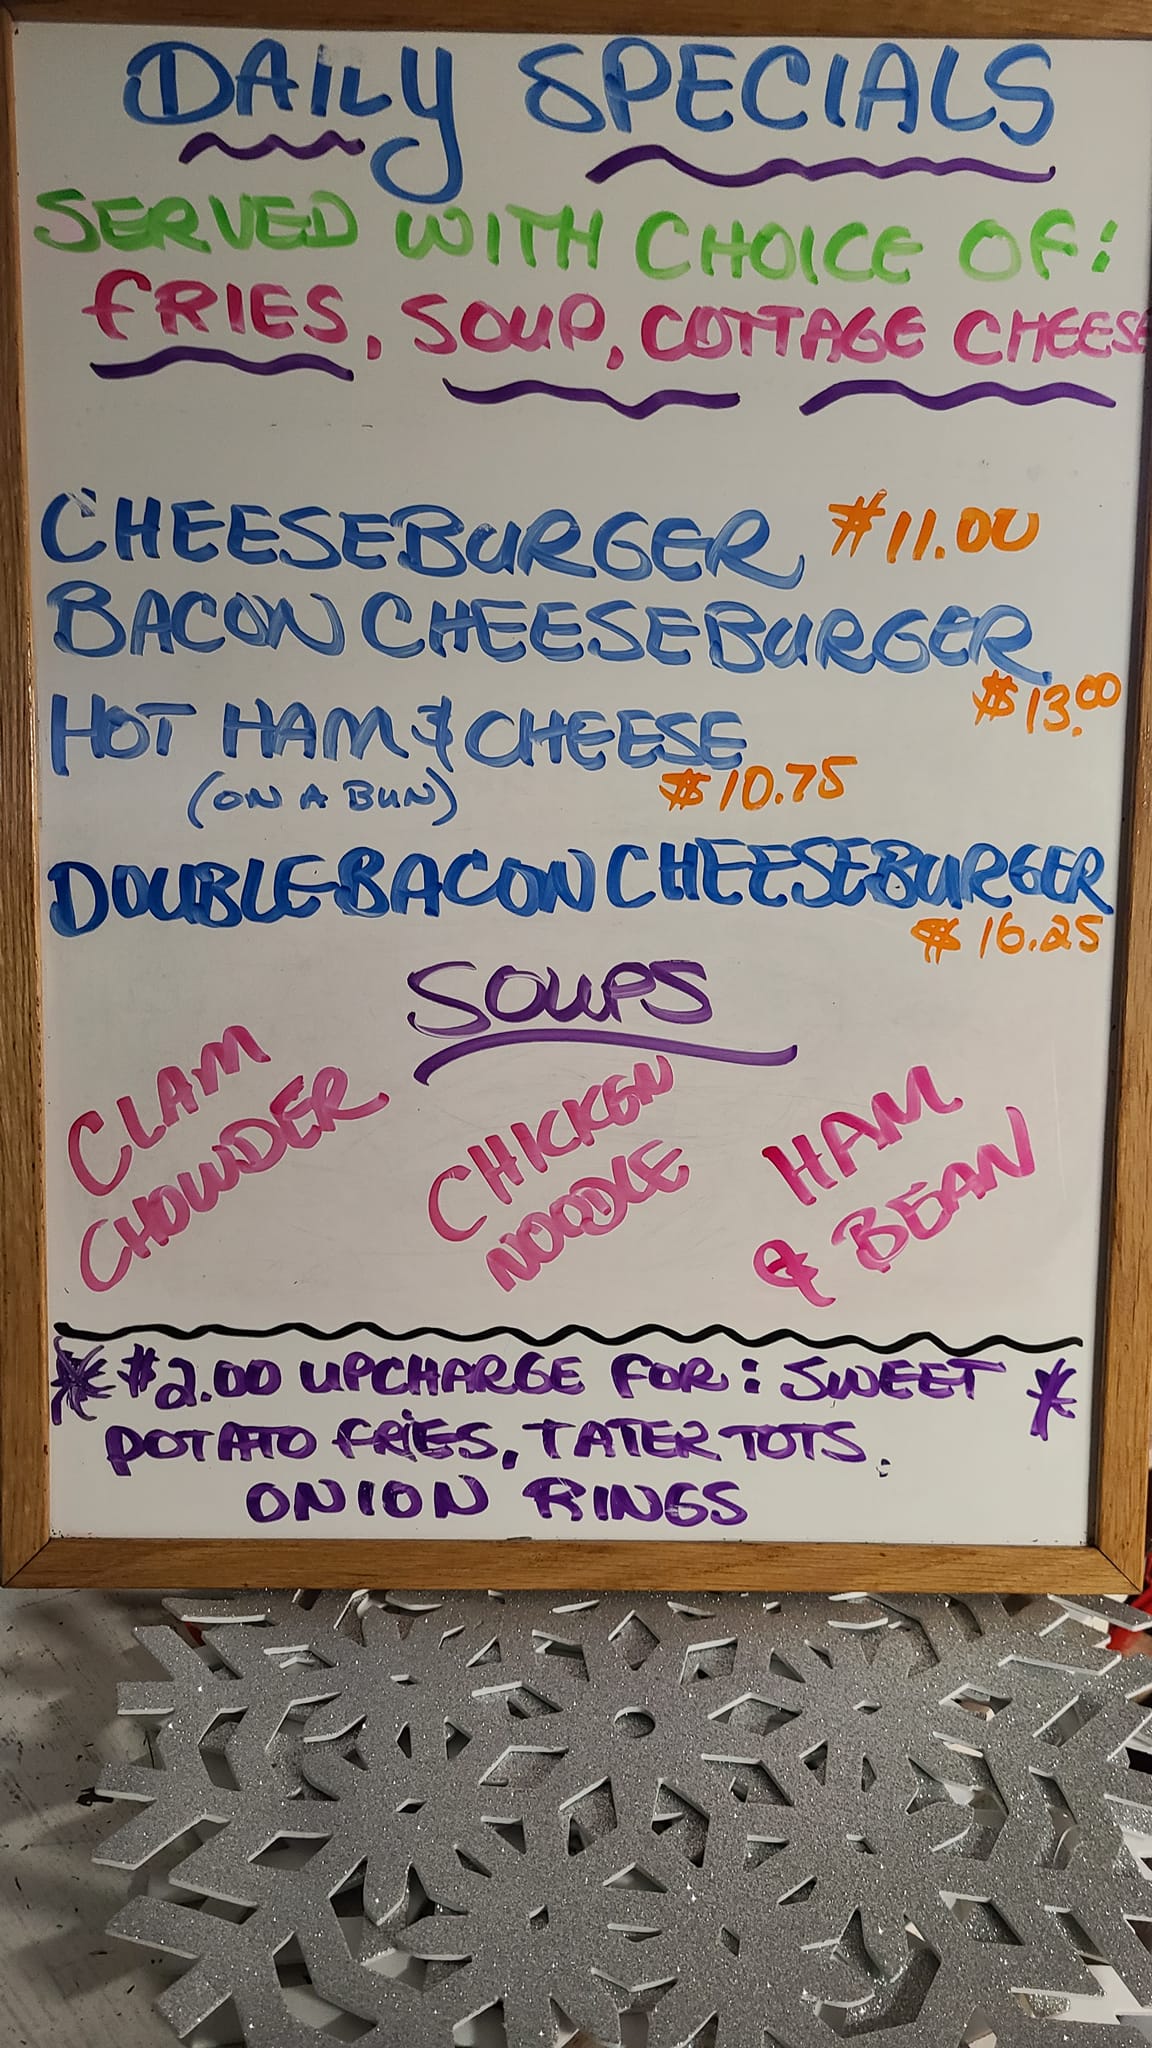 DAILY SPECIALS
SERVED WITH CHOICE OF:
FRIES, SOUP, COTTAGE CHEESE
CHEESEBURGER $11.00
BACON CHEESEBURGER
$13.00
HOT HAM & CHEESE
(ON A BUN) $10.75
DOUBLE BACON CHEESEBURGER
$16.25
SOUPS
CLAM
CHOWDER
CHICKEN
NOODLE
HAM
& BEAN
* $2.00 UPCHARGE FOR: SWEET *
POTATO FRIES, TATER TOTS,
ONION RINGS